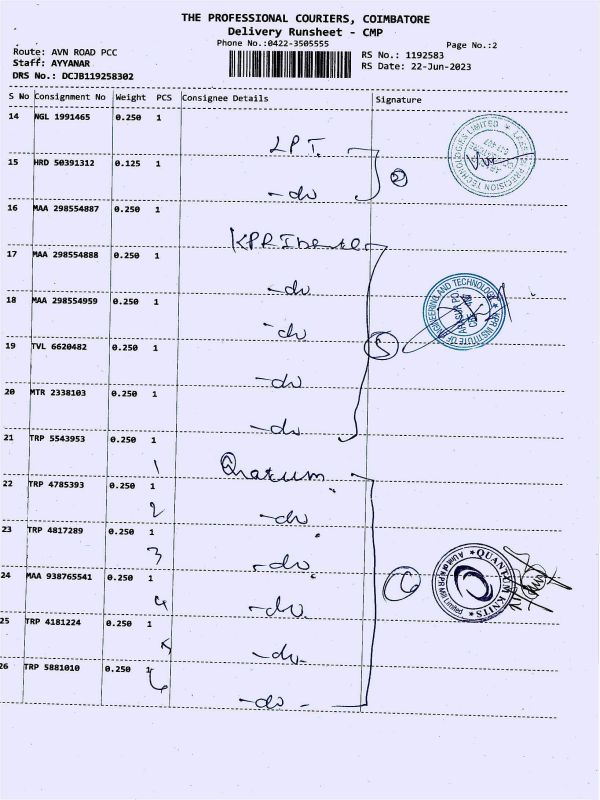 THE PROFESSIONAL COURIERS, COIMBATORE
Delivery Runsheet - CMP
Phone No.:0422-3505555
Page No.:2
Route: AVN ROAD PCC
RS No.: 1192583
Staff: AYYANAR
RS Date: 22-Jun-2023
DRS No.: DCJB119258302
S No Consignment No Weight PCS Consignee Details Signature
14 NGL 1991465 0.250 1
LPT.
15 HRD 50391312 0.125 1
-do
2
16 MAA 298554887 0.250 1
17 MAA 298554888 0.250 1
-do
18 MAA 298554959 0.250 1
-do
5
19 TVL 6620482 0.250 1
-do
20 MTR 2338103 0.250 1
-do
21 TRP 5543953 0.250 1
1
22 TRP 4785393 0.250 1
2 -do
23 TRP 4817289 0.250 1
3 -do.
6
24 MAA 938765541 0.250 1
4 -do.
25 TRP 4181224 0.250 1
5 -do.
26 TRP 5881010 0.250 1
6 -do -
PRECISION TECHNOLOGIES LIMITED
KPR INSTITUTE OF ENGINEERING AND TECHNOLOGY
QUANTUM KNITS